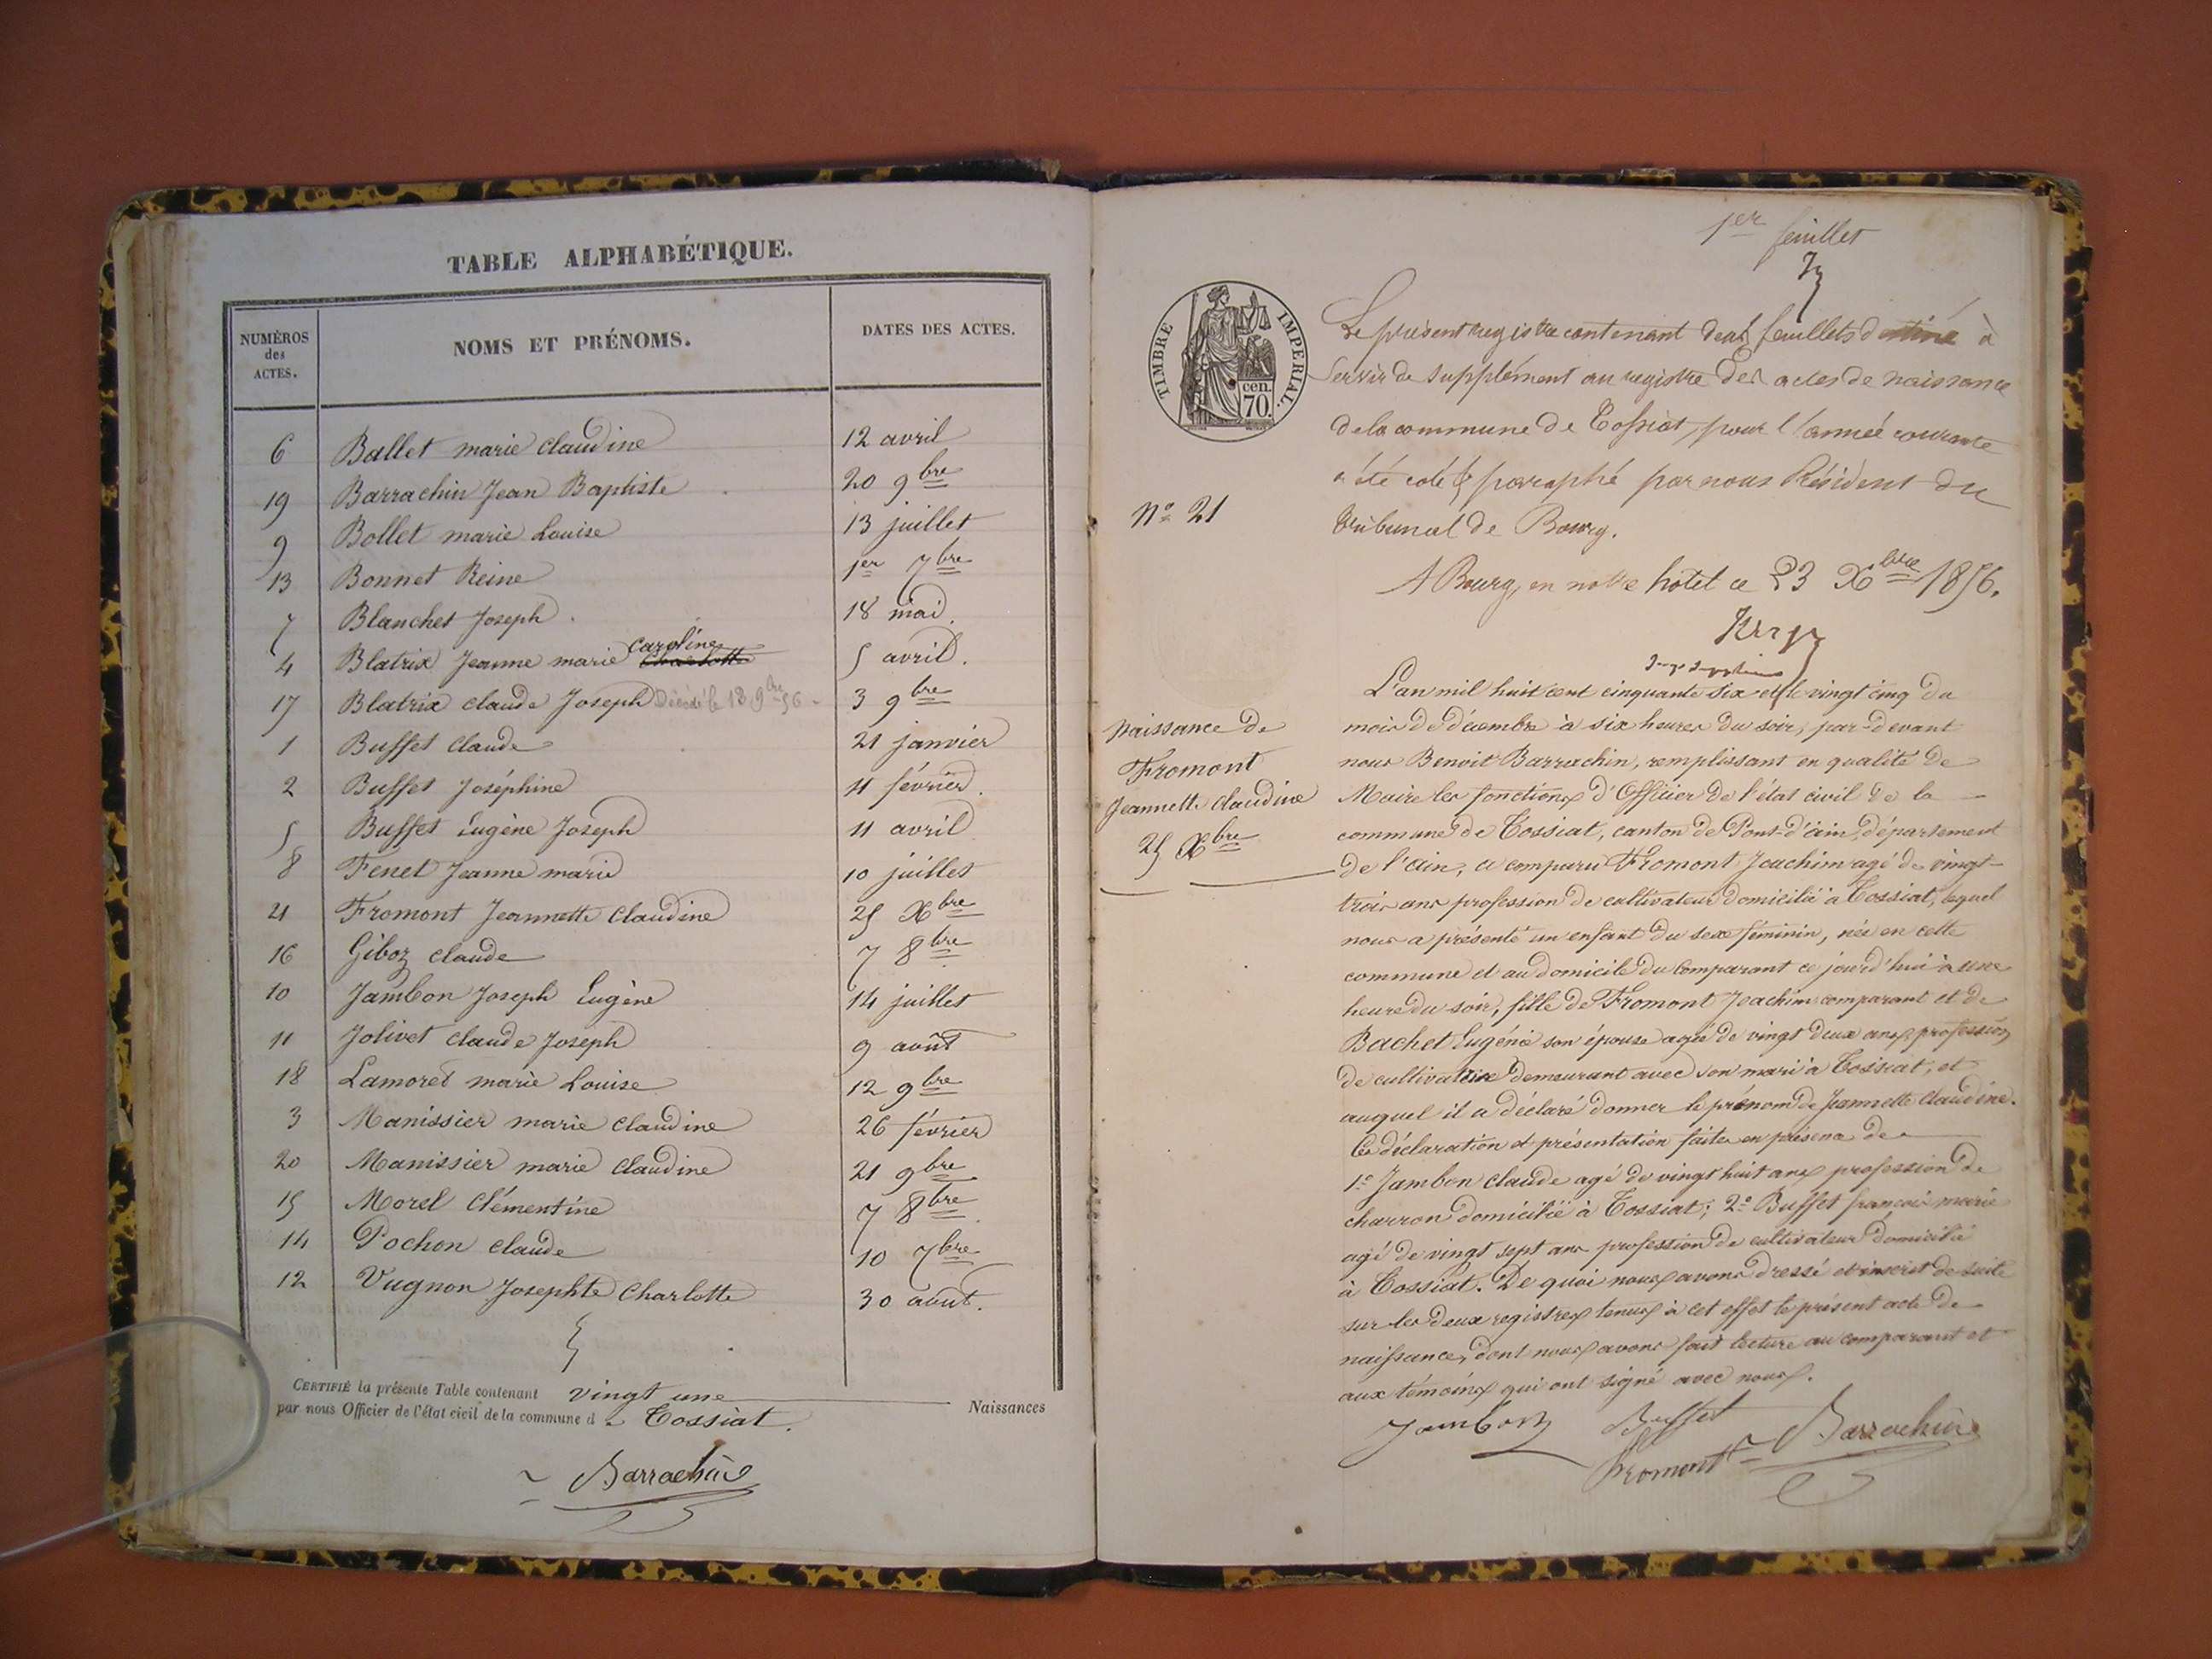 TABLE ALPHABÉTIQUE.
NUMÉROS des ACTES. NOMS ET PRÉNOMS. DATES DES ACTES.
6 Ballet marie claudine 12 avril
19 Barrachin Jean Baptiste 20 9bre
9 Bollet marie Louise 13 juillet
13 Bonnet Reine 1er 7bre
7 Blanchet Joseph 18 mai
4 Blatrix Jeanne marie caroline Charlotte 5 avril.
17 Blatrix claude Joseph Décédé le 18 9bre 56 3 9bre
1 Buffet claude 21 janvier
2 Buffet Joséphine 11 février.
5 Buffet Eugène Joseph 11 avril
8 Fenet Jeanne marie 10 juillet
21 Fromont Jeannette claudine 25 Xbre
16 Giboz claude 7 8bre
10 Jambon Joseph Eugène 14 juillet
11 Jolivet claude Joseph 9 août
18 Lamoret marie Louise 12 9bre
3 Manissier marie claudine 26 février
20 Manissier marie claudine 21 9bre
15 Morel Clémentine 7 8bre
14 Pochon claude 10 7bre
12 Vugnon Josephte Charlotte 30 août.
CERTIFIÉ la présente Table contenant vingt une Naissances
par nous Officier de l'état civil de la commune de Tossiat.
Barrachin
1er feuillet
TIMBRE IMPERIAL.
cen.
70.
Le présent registre contenant deux feuillets destiné à
servir de supplément au registre des actes de naissance
de la commune de Tossiat, pour l'année courante
a été coté & paraphé par nous Président du
tribunal de Bourg.
A Bourg, en notre hôtel ce 23 Xbre 1856.
N° 21
Naissance de
Fromont
Jeannette claudine
25 Xbre
L'an mil huit cent cinquante six et le vingt cinq du
mois de décembre à six heures du soir, par-devant
nous Benoit Barrachin, remplissant en qualité de
Maire les fonctions d'Officier de l'état civil de la
commune de Tossiat, canton de Pont-d'ain, département
de l'ain, a comparu Fromont Joachim agé de vingt-
trois ans profession de cultivateur domicilié à Tossiat, lequel
nous a présenté un enfant du sexe féminin, née en cette
commune et au domicile du comparant ce jourd'hui à une
heure du soir, fille de Fromont Joachim comparant et de
Bachet Eugénie son épouse agée de vingt deux ans profession
de cultivatrice demeurant avec son mari à Tossiat, et
auquel il a déclaré donner le prénom de Jeannette Claudine.
Les déclaration et présentation faites en présence de
1° Jambon claude agé de vingt huit ans profession de
charron domicilié à Tossiat; 2° Buffet françois marie
agé de vingt sept ans profession de cultivateur domicilié
à Tossiat. De quoi nous avons dressé et inscrit de suite
sur les deux registres tenus à cet effet le présent acte de
naissance, dont nous avons fait lecture au comparant et
aux témoins qui ont signé avec nous.
Jambon Buffet Barrachin
Fromont